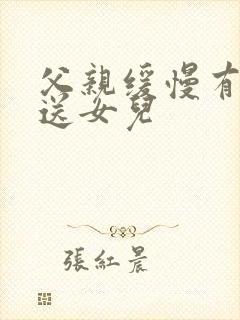 父親缓慢有
送女兒
張紅晨